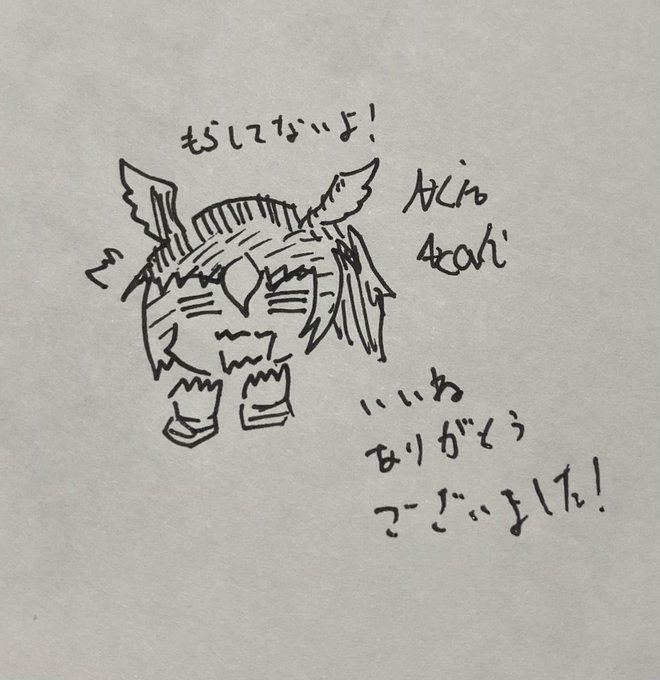 もらしてないよ!
いいね
ありがとう
ございました!